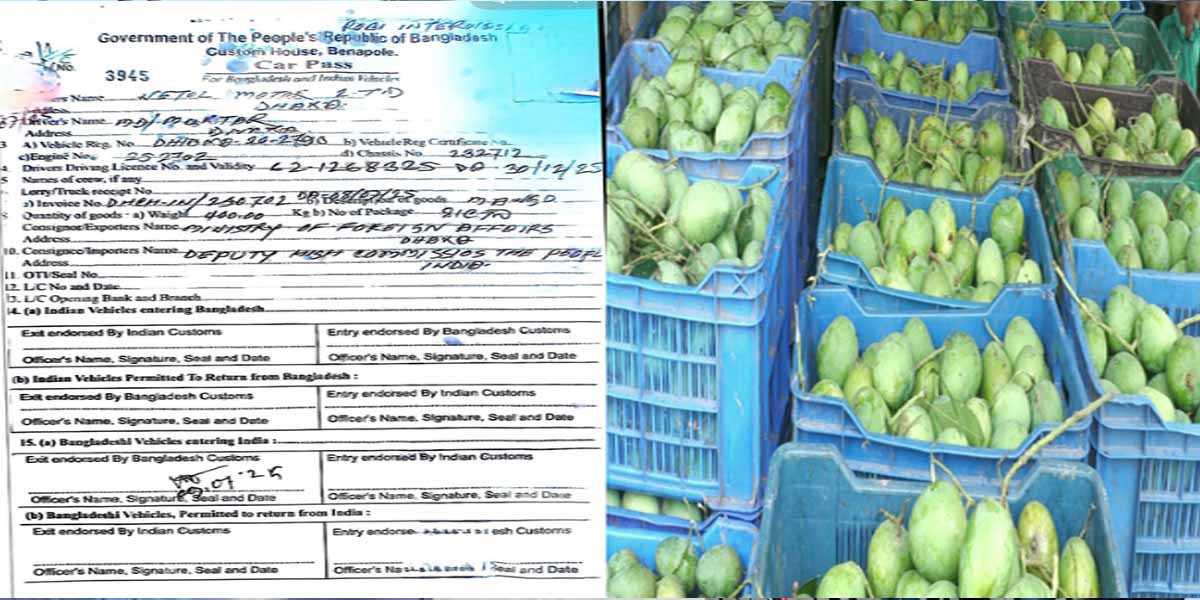 Government of The People's Republic of Bangladesh
Custom House, Benapole.
Car Pass
3945
For Bangladesh and Indian Vehicles
Name
DHAKA
Driver's Name MD/MOKTAR
Address DHAKA
A) Vehicle Reg. No b) Vehicle Reg Certificate No.
c) Engine No. 25-2702 d) Chassis No. 232712
Drivers Driving Licence No. and Validity 30/12/25
Names of crew, if any
Lorry/Truck receipt No
a) Invoice No. of goods MANGO
Quantity of goods - a) Waight 400.00 Kg b) No of Package
Consignor/Exporters Name MINISTRY OF FOREIGN AFFAIRS
Address DHAKA
10. Consignee/Importers Name DEPUTY HIGH THE
Address INDIA
11. OTI/Seal No
12. L/C No and Date
13. L/C Opening Bank and Branch
14. (a) Indian Vehicles entering Bangladesh
Exit endorsed By Indian Customs Entry endorsed By Bangladesh Customs
Officer's Name, Signature, Seal and Date Officer's Name, Signature, Seal and Date
(b) Indian Vehicles Permitted To Return from Bangladesh :
Exit endorsed By Bangladesh Customs Entry endorsed By Indian Customs
Officer's Name, Signature, Seal and Date Officer's Name, Signature, Seal and Date
15. (a) Bangladeshi Vehicles entering India :
Exit endorsed By Bangladesh Customs Entry endorsed By Indian Customs
Officer's Name, Signature, Seal and Date Officer's Name, Signature, Seal and Date
(b) Bangladeshi Vehicles, Permitted to return from India :
Exit endorsed By Indian Customs Entry endorse Customs
Officer's Name, Signature, Seal and Date Officer's Seal and Date